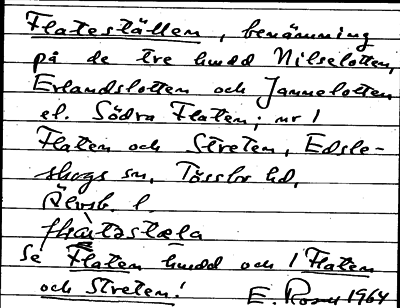 Flateställen, benämning
på de tre hmdd Nilselotten,
Erlandslotten och Jannelotten
el. Södra Flaten; nr 1
Flaten och Streten, Edsle-
skogs sn, Tössbo hd,
Älvsb. l
Se Flaten hmdd och 1 Flaten
och Streten!
E. Rosu 1964